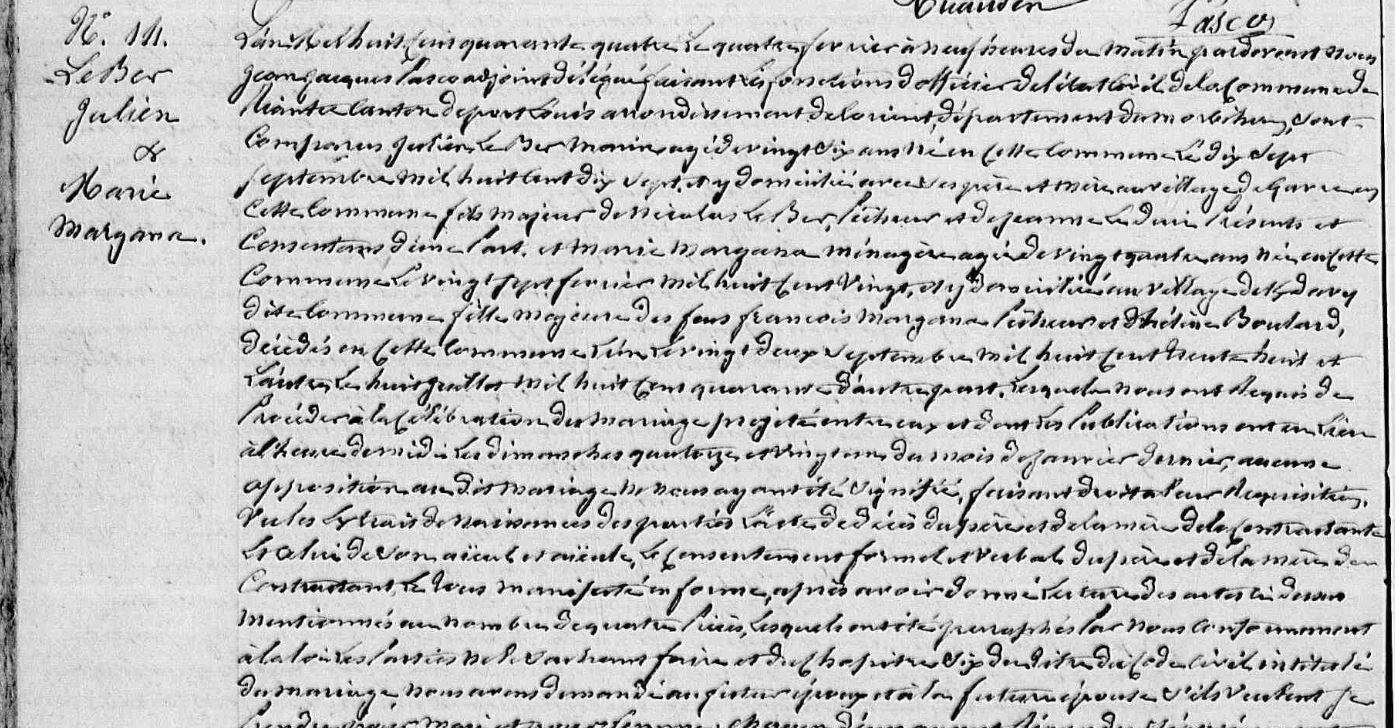 Pasco
N°. 14.
Le Ber
Julien
&
Marie
Margana.
L'an Mil huit Cent quarante quatre Le quatre fevrier à neuf heures du Matin pardevant nous
Jean Jacques Pasco adjoint délégué faisant les fonctions d'officier de l'état Civil de la Commune de
Riantec Canton de port Louis arrondissement de Lorient, département du morbihan, Sont
Comparus Julien Le Ber Marin agé de vingt Six ans Né en Cette Commune Le dix Sept
Septembre Mil huit Cent dix Sept, et y domicilié avec Ses père et Mère au village de en
Cette Commune fils majeur de Nicolas Le Ber, Pêcheur et de Jeanne Le Présents et
Consentans d'une Part. et Marie Margana Ménagère agée de vingt quatre ans Née en Cette
Commune Le vingt Sept fevrier Mil huit Cent Vingt, et y domiciliée au village de
dite Commune fille Majeure des feus françois Margana Pêcheur et d'hélène Boulard,
décédés en Cette Commune L'un Le vingt deux Septembre Mil huit Cent trente huit et
L'autre Le huit Juillet Mil huit Cent quarante d'autre part. Lesquels nous ont Requis de
Procéder à la Célébration du Mariage projeté entre eux et dont Les Publications ont eu Lieu
à l'heure de midi Les dimanches quatorze et vingt un du mois de Janvier dernier, aucune
opposition au dit Mariage Ne nous ayant été Signifiée, faisant droit à leur Requisition,
Vu les Extraits de Naissances des parties L'acte de décès du père et de la mère de la Contractante
Et Celui de Son aïeul et aïeule, Le Consentement formel et Verbal du père et de la mère du
Contractant, Le tous Manifesté en forme, après avoir donné Lecture des actes Ci dessus
Mentionnés au Nombre de quatre Pièces, Lesquels ont été paraphés Par Nous Conformément
à la loi Les Parties Ne le Sachant faire et du Chapitre Six du titre du Code Civil intitulé
du mariage nous avons demandé au futur époux et à la future épouse s'ils veulent Se
Prendre Pour Mari et Pour femme, Chacun d'eux ayant